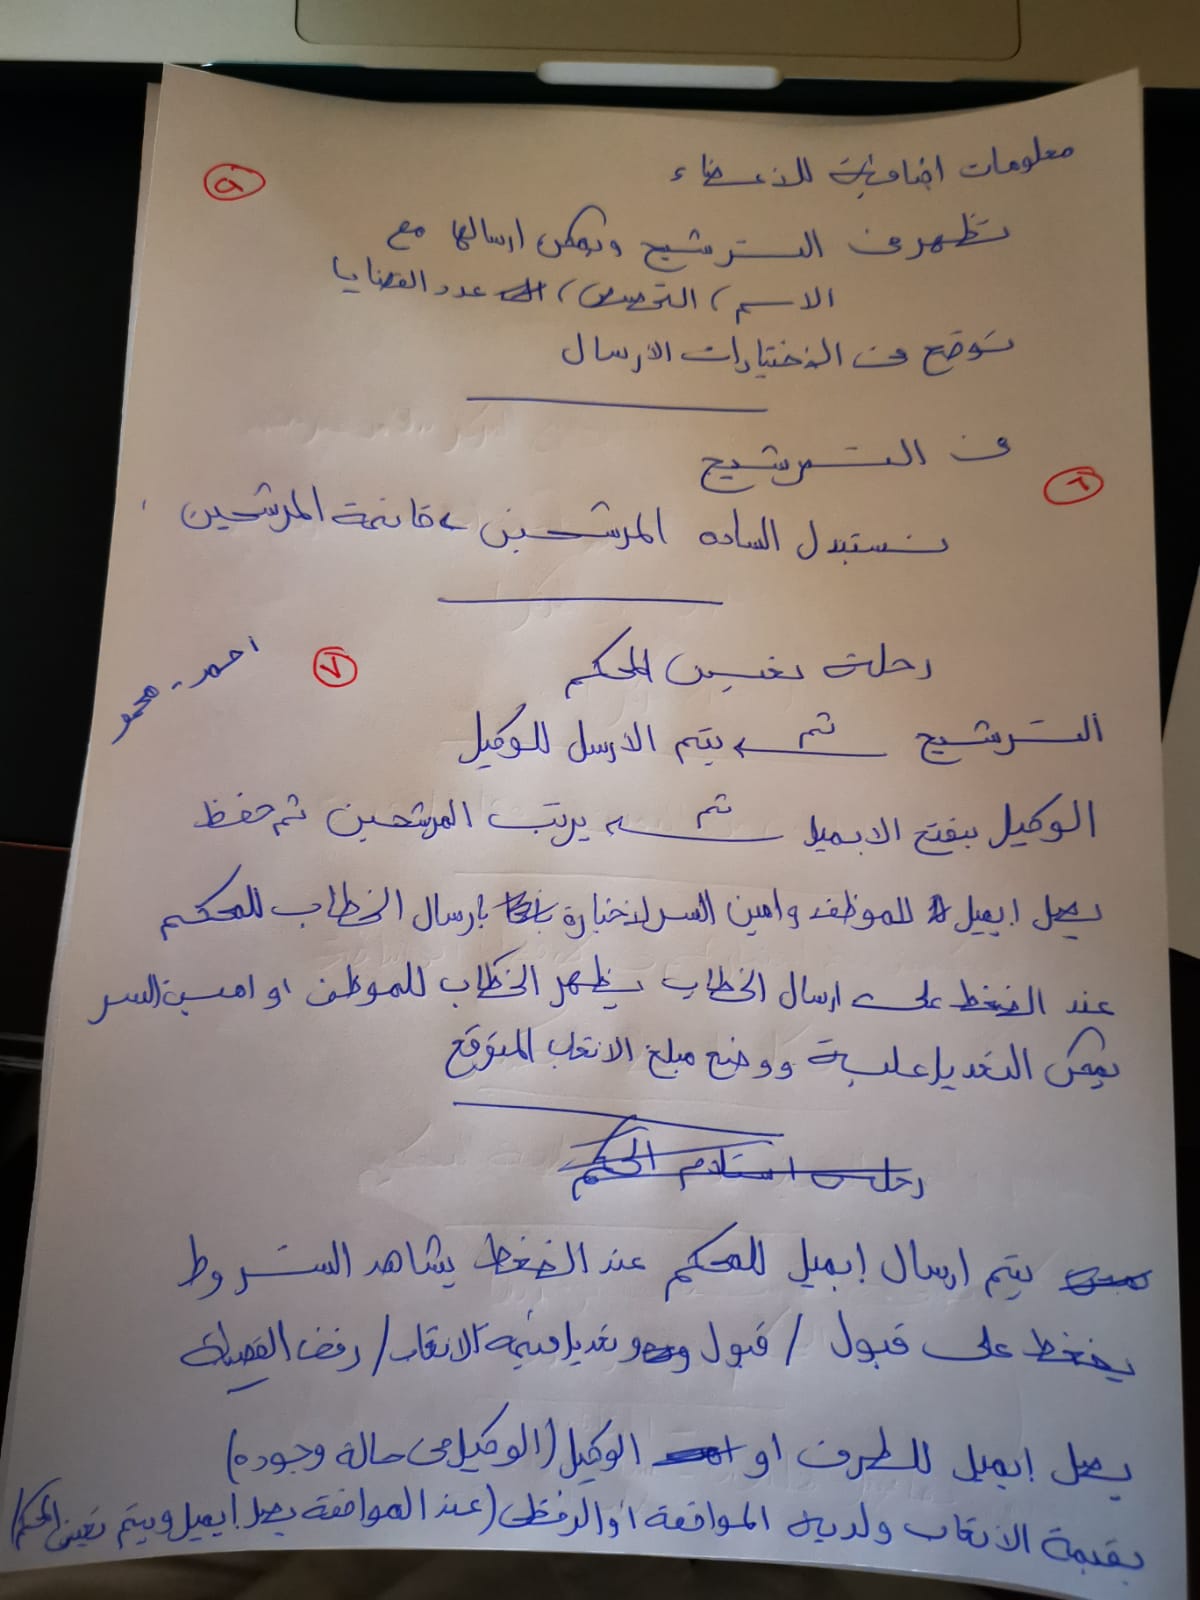 معلومات اضافية للأعضاء
٥
تظهر في الترشيح ويمكن ارسالها مع
الاسم / التخصص / عدد القضايا
توضع في الاختيارات الارسال
في الترشيح
٦
نستبدل الساده المرشحين ← قائمة المرشحين
رحلة تعيين المحكم
٧
احمد - محمد
الترشيح ثم ← يتم الارسل للوكيل
الوكيل بيفتح الايميل ثم ← يرتب المرشحين ثم حفظ
يصل ايميل للموظف وامين السر لاخبارة بارسال الخطاب للمحكم
عند الضغط على ارسال الخطاب يظهر الخطاب للموظف او امين السر
يمكن التعديل علية ووضع مبلغ الاتعاب المتوقع
رحلة استلام الحكم
يتم ارسال إيميل للمحكم عند الضغط يشاهد الشروط
يضغط على قبول / قبول وتعديل قيمة الاتعاب / رفض القضية
يصل إيميل للطرف او الوكيل (الوكيل في حالة وجوده)
بقيمة الاتعاب ولديه الموافقة أو الرفض (عند الموافقة يصل إيميل ويتم تعيين المحكم)